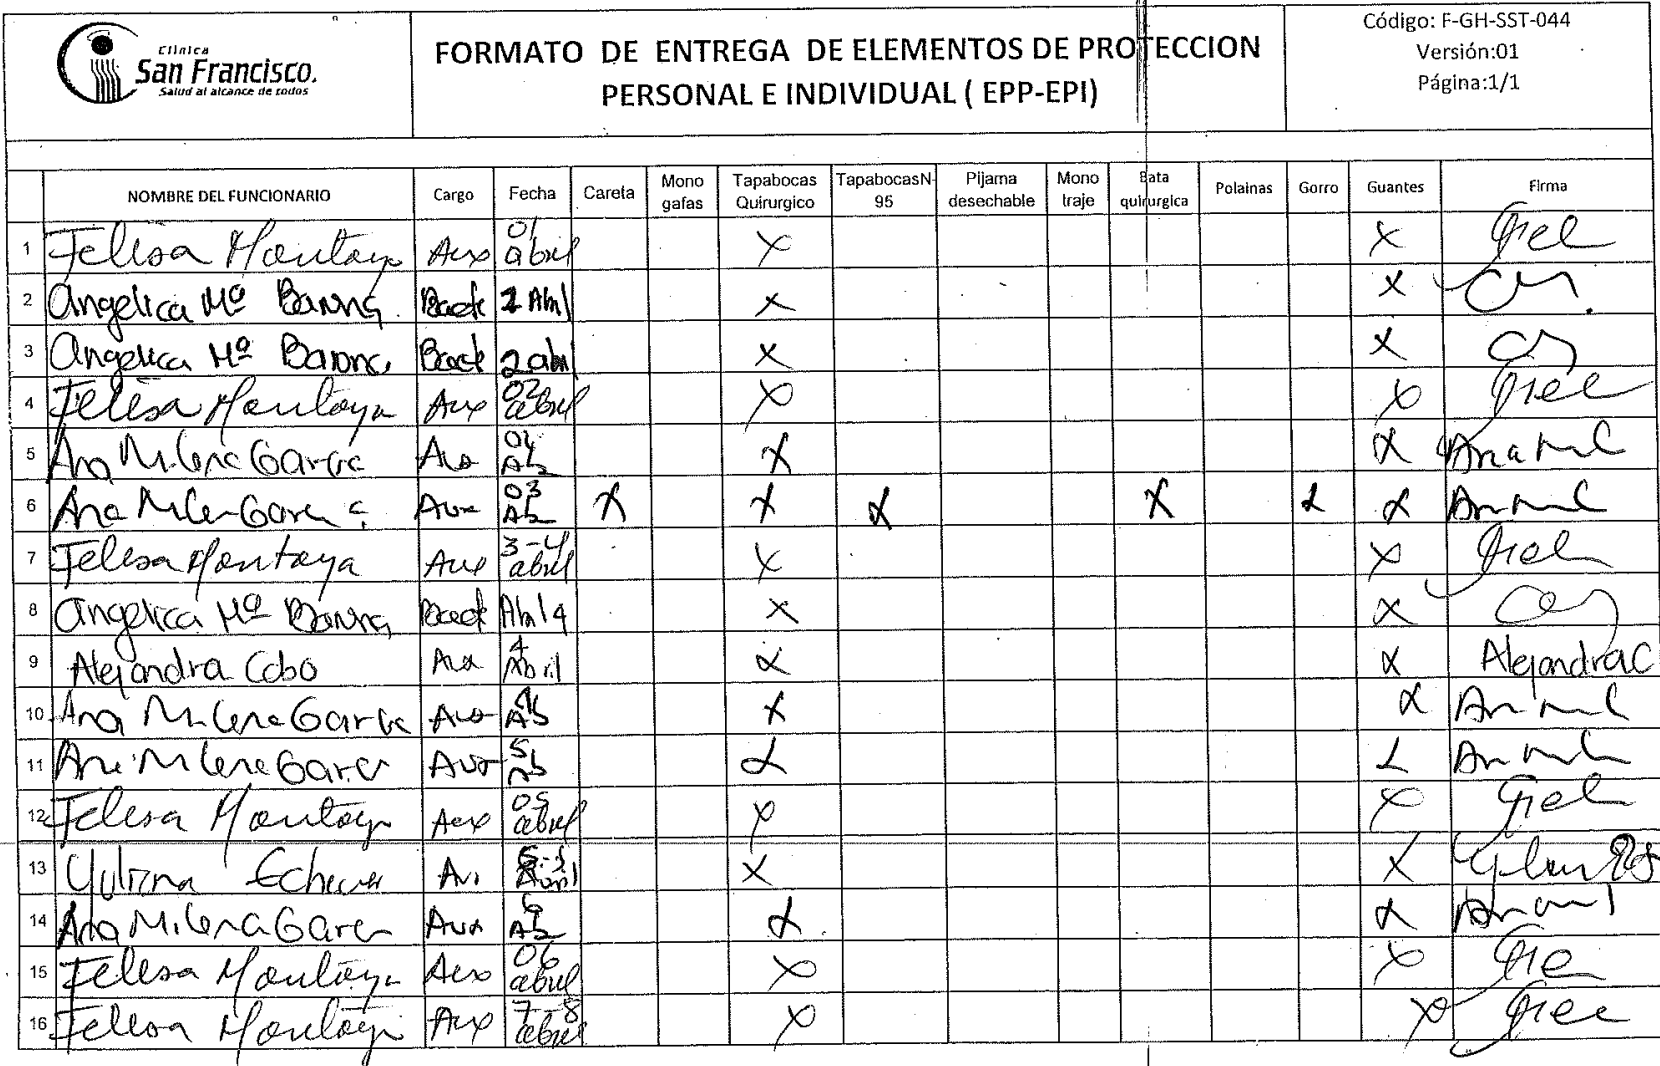 Clínica
San Francisco.
Salud al alcance de todos
FORMATO DE ENTREGA DE ELEMENTOS DE PROTECCION
PERSONAL E INDIVIDUAL ( EPP-EPI)
Código: F-GH-SST-044
Versión:01
Página:1/1
NOMBRE DEL FUNCIONARIO Cargo Fecha Careta Mono gafas Tapabocas Quirurgico TapabocasN-95 Pijama desechable Mono traje Bata quirurgica Polainas Gorro Guantes Firma
1 Felisa Montoya Aux 01 abril X X
2 Angelica Mª Bact 1 Abril X X
3 Angelica Mª Bact 2 abril X X
4 Felisa Montoya Aux 02 abril X X
5 Ana Milena Garcia Aux Ab X X Ana Mil
6 Ana Milen Garcia Aux 03 Ab X X X X X X
7 Felisa Montoya Aux 3-4 abril X X
8 Angelica Mª Bact Abril 4 X X
9 Alejandra Cobo Aux 4 Abril X X Alejandra C
10 Ana Milena Garcia Aux 4 Ab X X
11 Ana Milena Garci Aux 5 Ab X X
12 Felisa Montoya Aux 05 abril X X
13 Yuliana Echever X X
14 Ana Milena Garci Aux 6 Ab X X
15 Felisa Montoya Aux 06 abril X X
16 Felisa Montoya Aux 7-8 abril X X